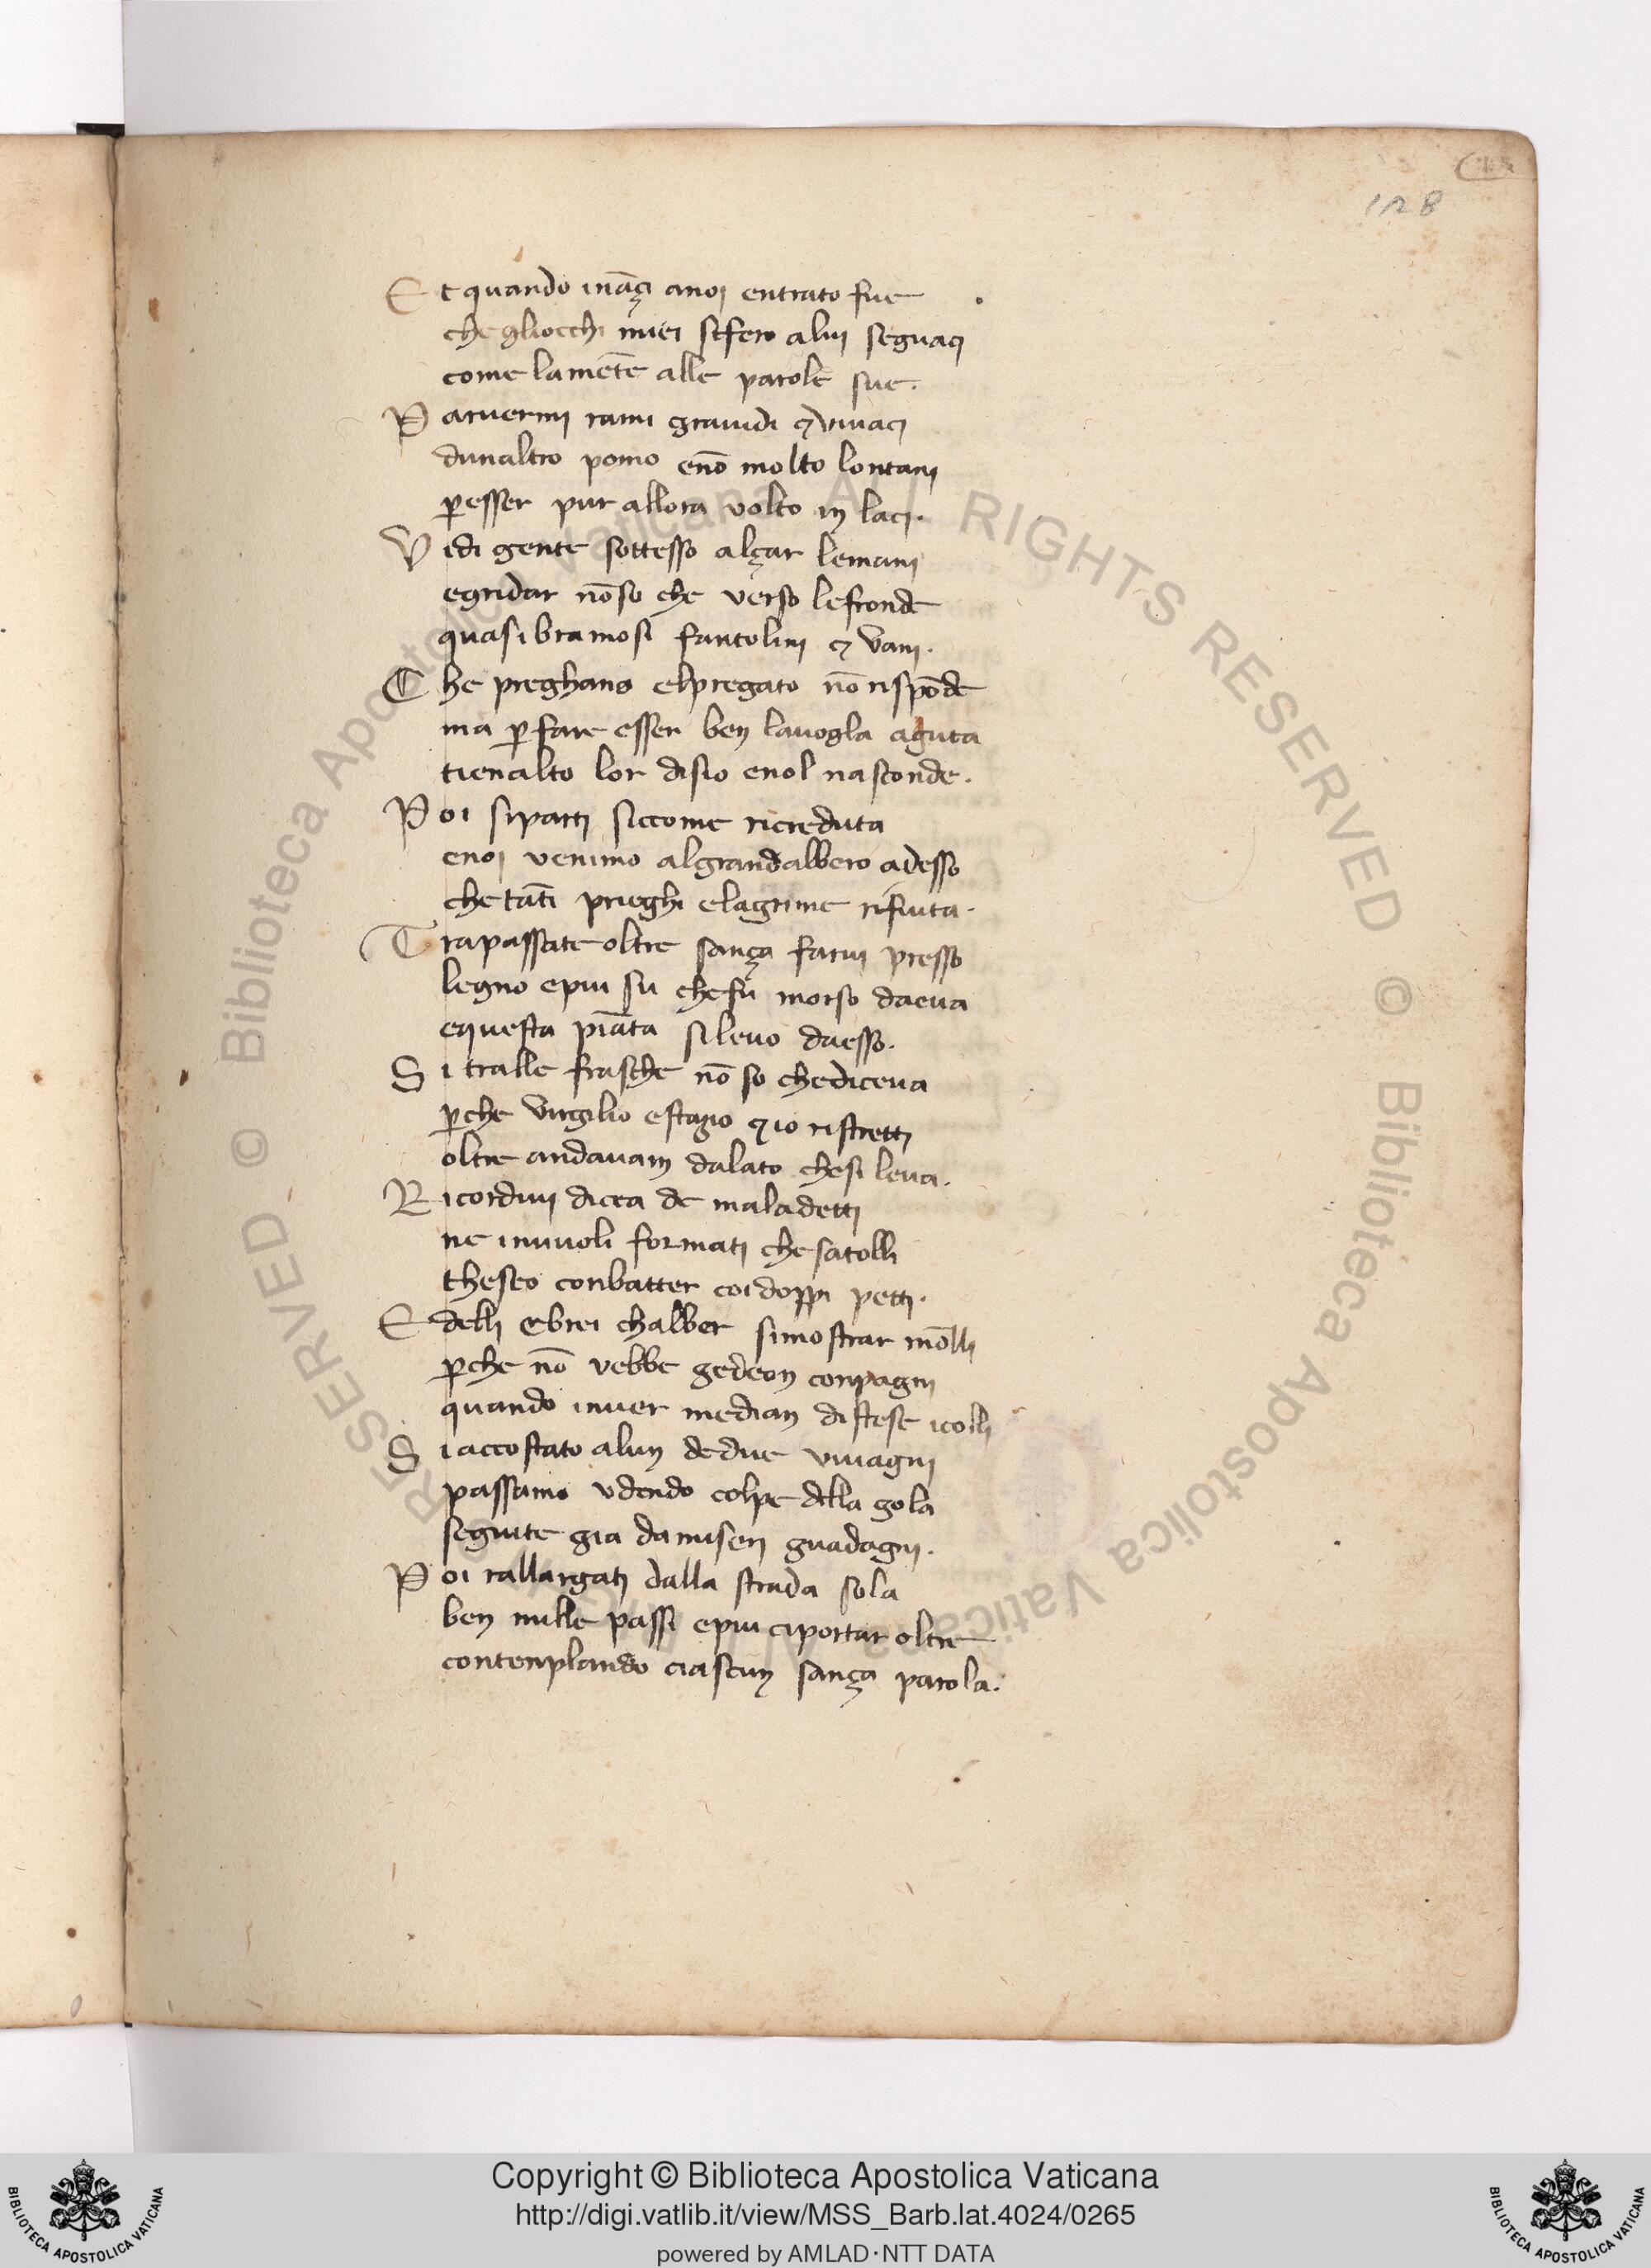 128
Et quando inãçi anoi entrato fue
che gliocchi miei sifero alui seguaci
come lamẽte alle parole sue.
Parvermi rami gravidi ⁊ vivaci
dunaltro pomo enõ molto lontani
ꝑesser pur allora volto in laci.
Vidi gente sottesso alçar lemani
egridar nõso che verso lefronde
quasi bramosi fantolini ⁊ vani.
Che preghano elpregato nõ rispõde
ma ꝑfare esser ben lavogla aguta
tienalto lor disio enol nasconde.
Poi siparti siccome ricreduta
enoi venimo algrandalbero adesso
che tãti prieghi elagrime rifiuta.
Trapassate oltre sança farvi presso
legno epiu su chefu morso daeva
equesta piãta silevo daesso.
Si tralle frasche nõ so chediceva
ꝑche virgilio estazio ⁊ io ristretti
oltre andavam dalato chesi leva.
Ricordivi dicea de maladetti
ne invuoli formati che satolli
theseo conbatter coidoppi petti.
E delli ebrei chalber simostrar mõlli
ꝑche nõ vebbe gedeon conpagni
quando inver median distese icolli
Si accostato alun dedue vivagni
passamo udendo colpe della gola
seguite gia damiseri guadagni.
Poi rallargati dalla strada sola
ben mille passi epiu ciportar oltre
contenplando ciascun sança parola.
Copyright © Biblioteca Apostolica Vaticana
http://digi.vatlib.it/view/MSS_Barb.lat.4024/0265
powered by AMLAD·NTT DATA
BIBLIOTECA APOSTOLICA VATICANA
BIBLIOTECA APOSTOLICA VATICANA